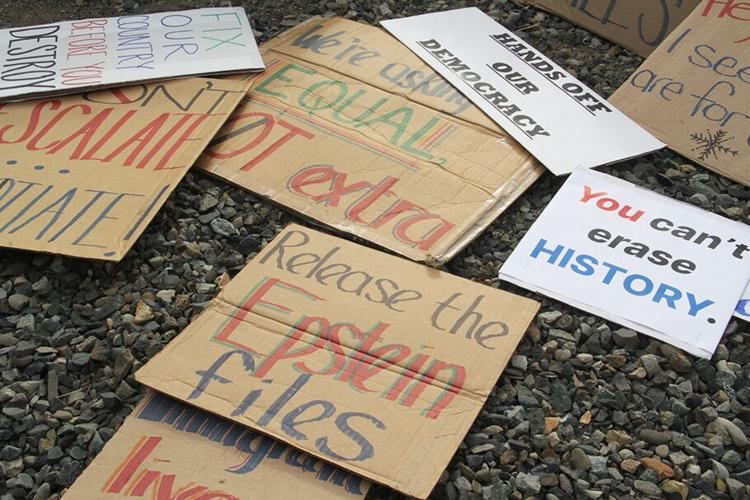 FIX
OUR
COUNTRY
BEFORE YOU
DESTROY
ESCALATE
We're asking
EQUAL,
extra
HANDS OFF
OUR
DEMOCRACY
I see
are for
You can't
erase
HISTORY.
Release the
Epstein
files